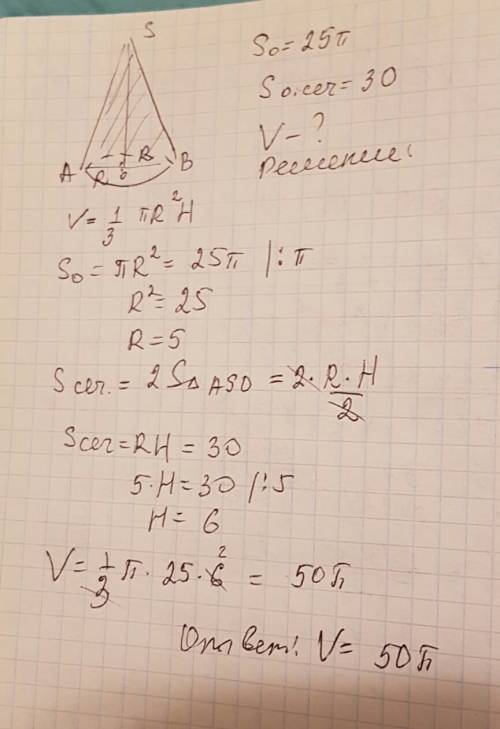 S
A R O R B
S₀ = 25π
S о.сеч = 30
V - ?
Решение:
V = 1/3 πR²H
S₀ = πR² = 25π |: π
R² = 25
R = 5
S сеч. = 2S△ASO = 2·R·H/2
Sсеч = RH = 30
5·H = 30 |: 5
H = 6
V = 1/3 π · 25 · 6 ² = 50π
Ответ: V = 50π